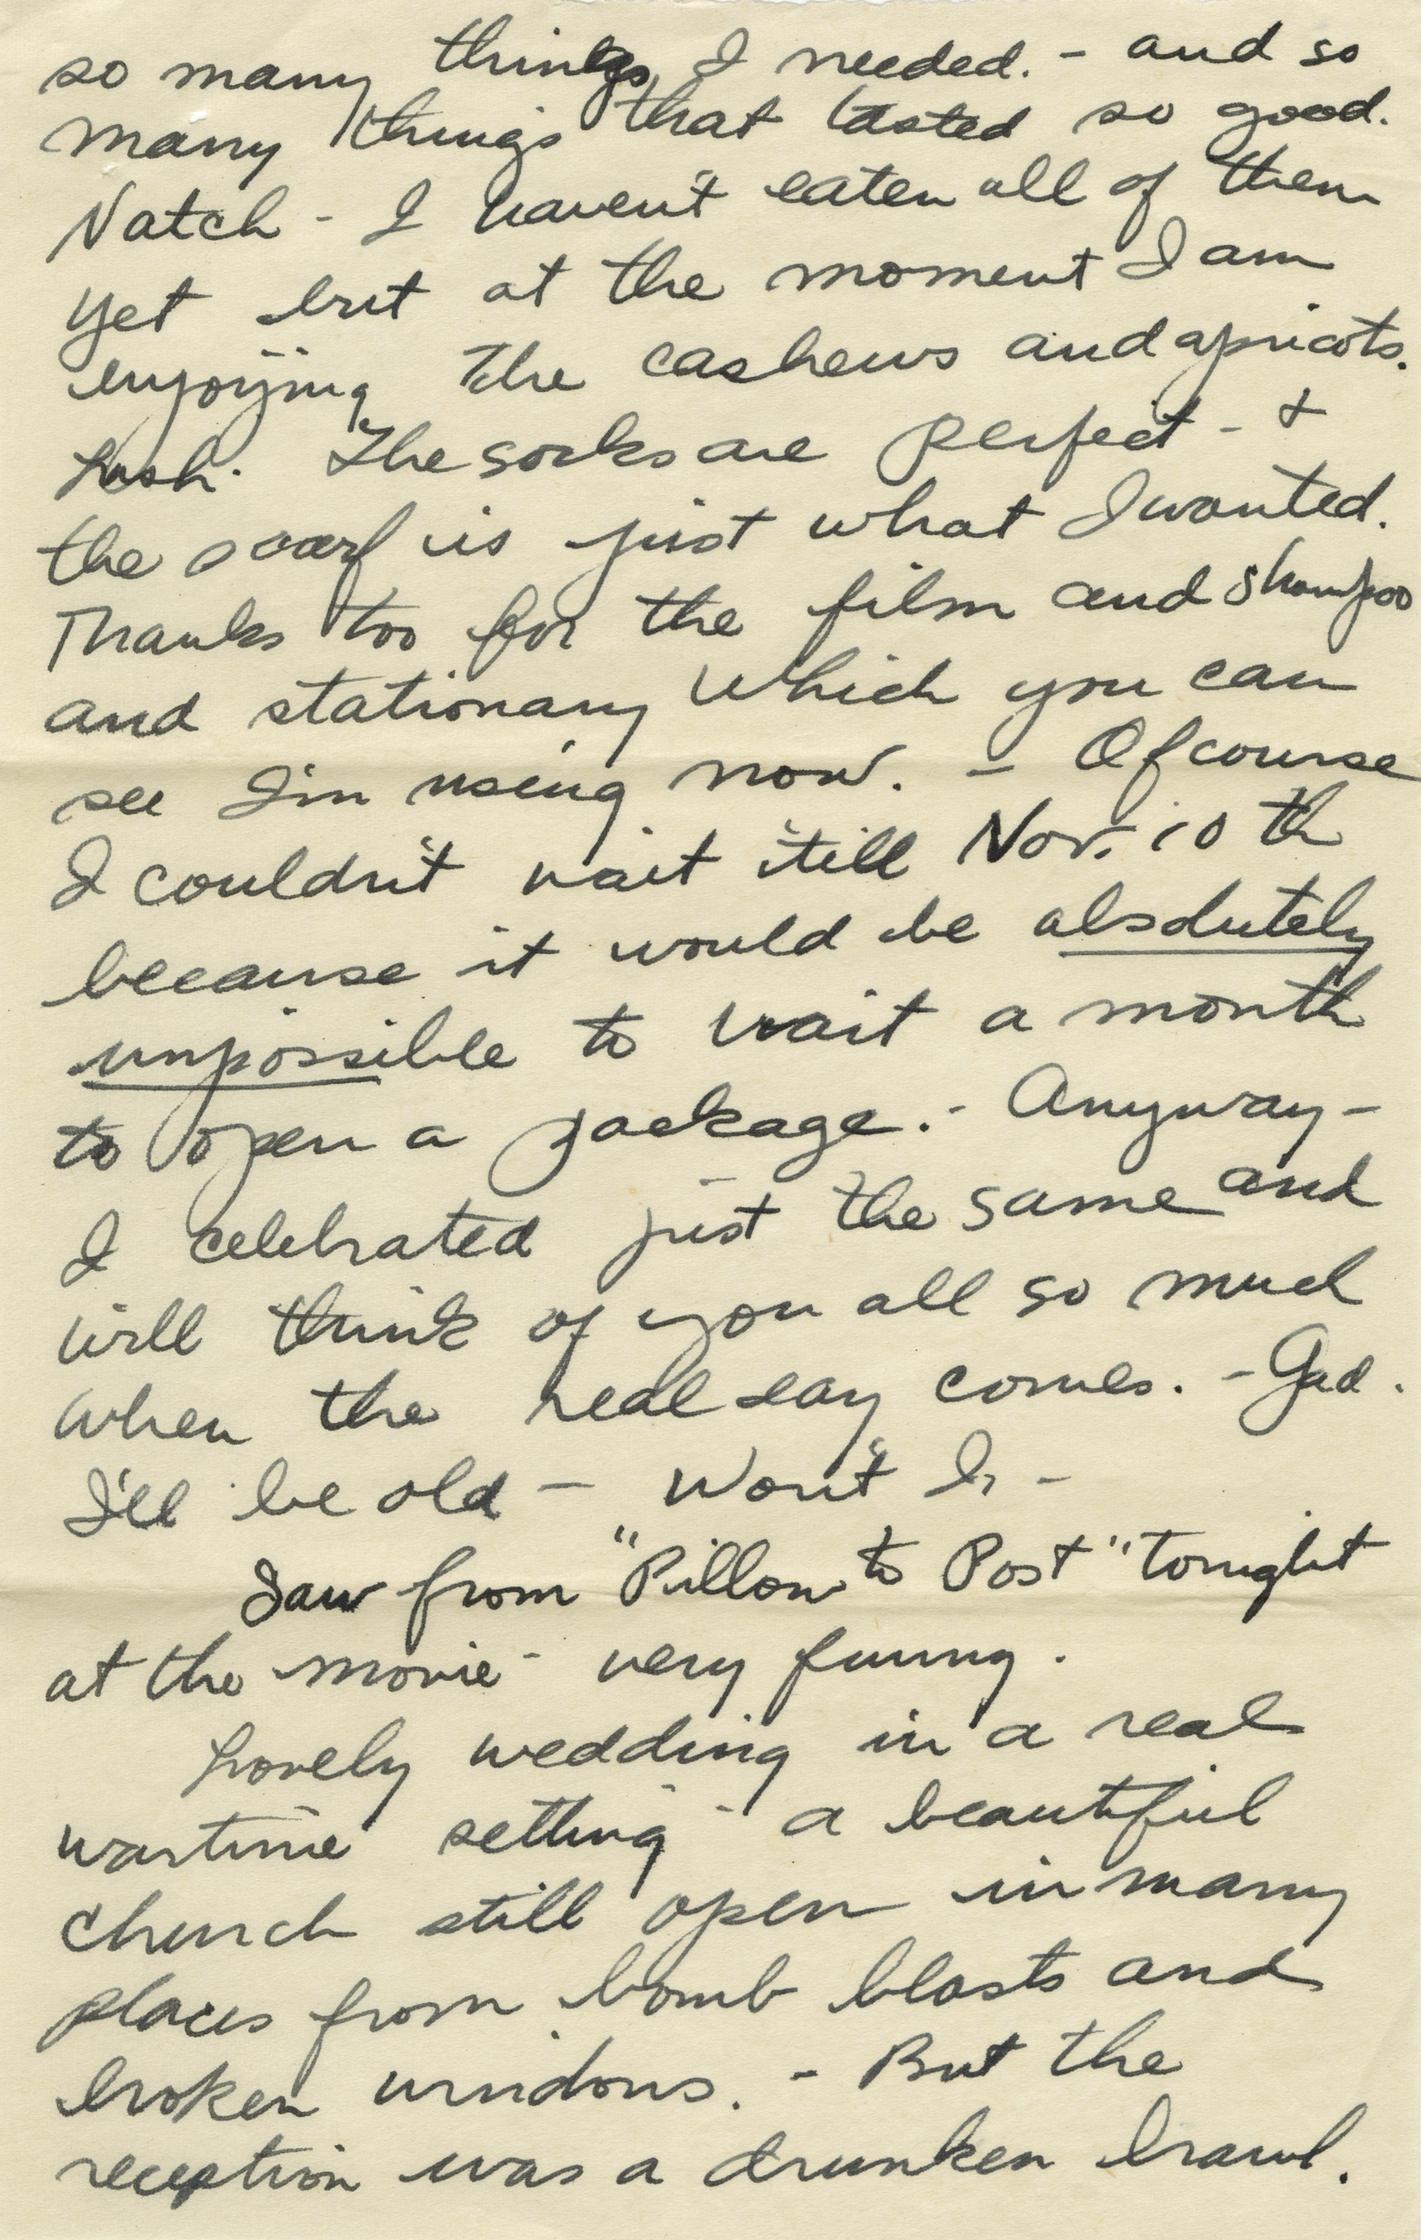 so many things I needed. - and so
many things that tasted so good.
Natch - I haven't eaten all of them
yet but at the moment I am
enjoying the cashews and apricots.
Losh. The socks are perfect - +
the scarf is just what I wanted.
Thanks too for the film and shampoo
and stationary which you can
see I'm using now. - Of course
I couldn't wait 'till Nov. 10th
because it would be absolutely
unpossible to wait a month
to open a package. - Anyway -
I celebrated just the same and
will think of you all so much
when the real day comes. - Gad.
I'll be old - Won't I, -
Saw from "Pillow to Post" tonight
at the movie - very funny.
Lovely wedding in a real
wartime setting - a beautiful
church still open in many
places from bomb blasts and
broken windows. - But the
reception was a drunken brawl.